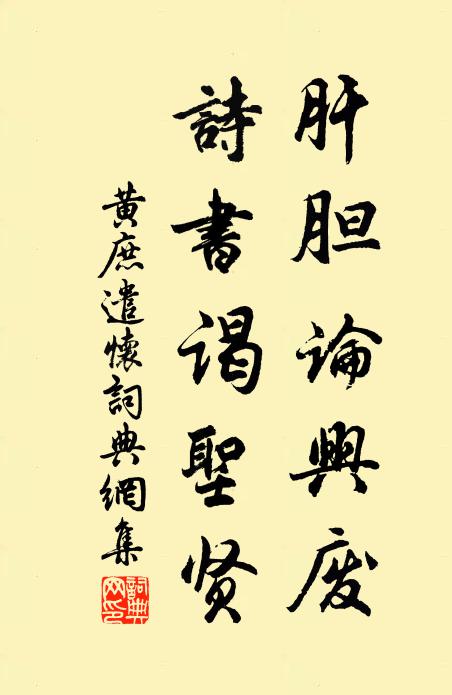 肝胆論興废
詩書谒聖贤
黄庶遣懷詞典網集
詞典网印